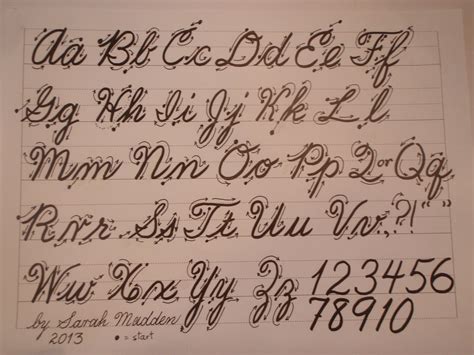 Aa Bb Cc Dd Ee Ff
Gg Hh Ii Jj Kk Ll
Mm Nn Oo Pp Q or Qq
Rr r Ss Tt Uu Vv ?! “ ”
Ww Xx Yy Zz 123456
78910
by Sarah Madden
2013 • = start